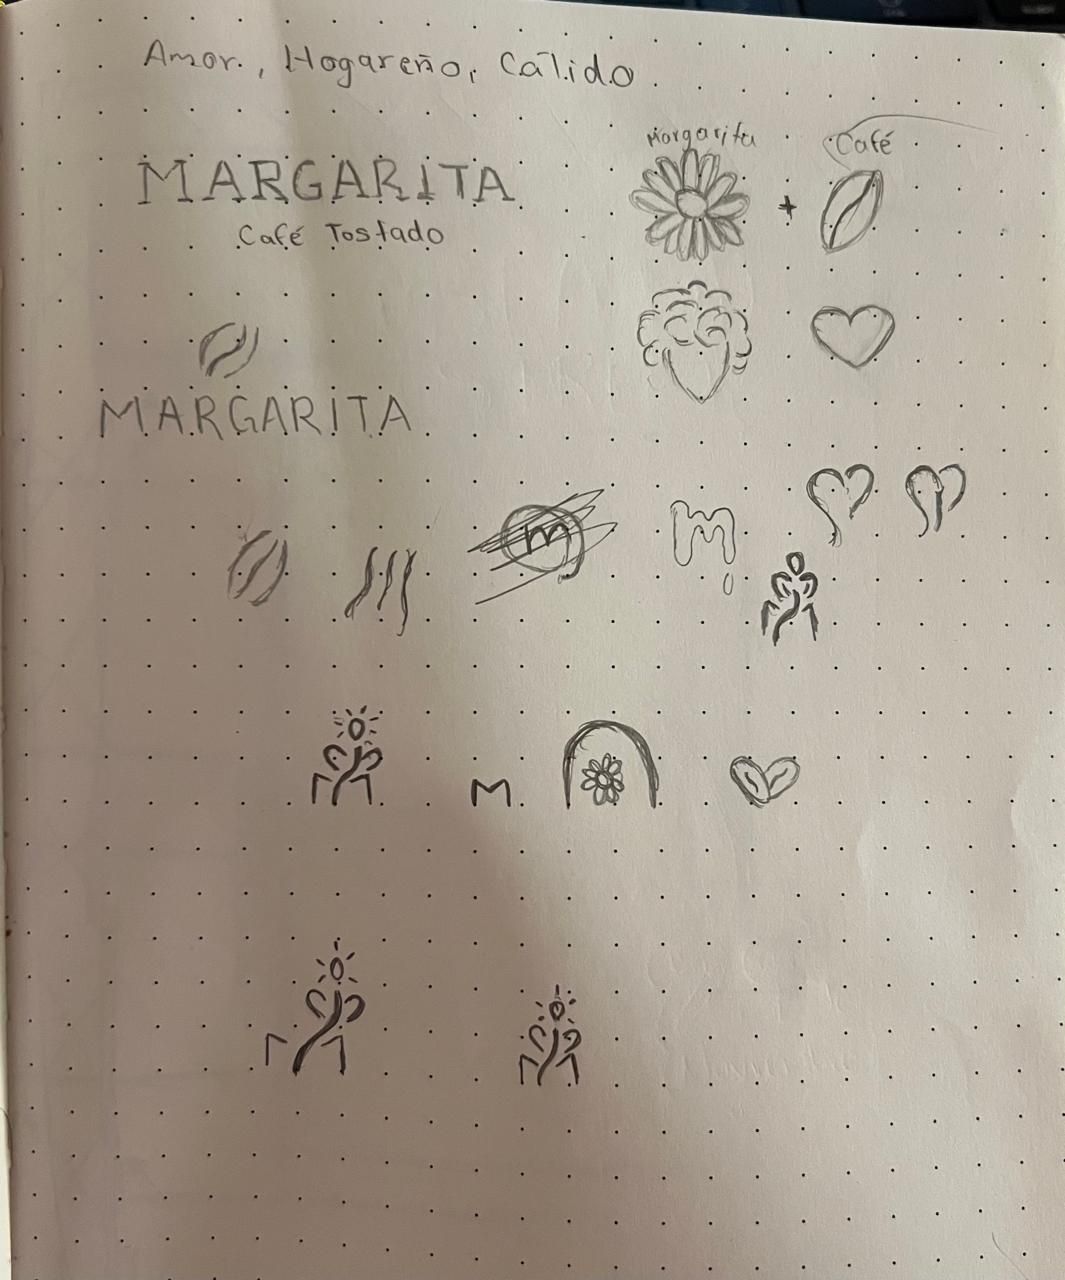 Amor, Hogareño, Cálido.
Margarita
Café
MARGARITA
+
Café Tostado
MARGARITA
m
m
M